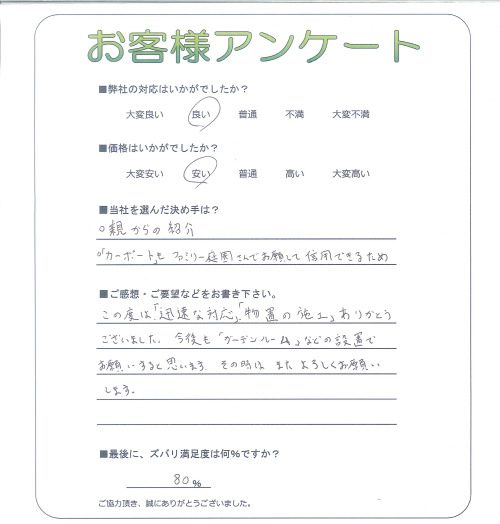 お客様アンケート
■弊社の対応はいかがでしたか？
大変良い　良い　普通　不満　大変不満
■価格はいかがでしたか？
大変安い　安い　普通　高い　大変高い
■当社を選んだ決め手は？
○親からの紹介
○「カーポート」をファミリー庭園さんでお願して信用できるため
■ご感想・ご要望などをお書き下さい。
この度は「迅速な対応」「物置の施工」ありがとう
ございました。今後も「ガーデンルーム」などの設置で
お願いすると思います。その時は またよろしくお願い
します。
■最後に、ズバリ満足度は何%ですか？
80%
ご協力頂き、誠にありがとうございました。